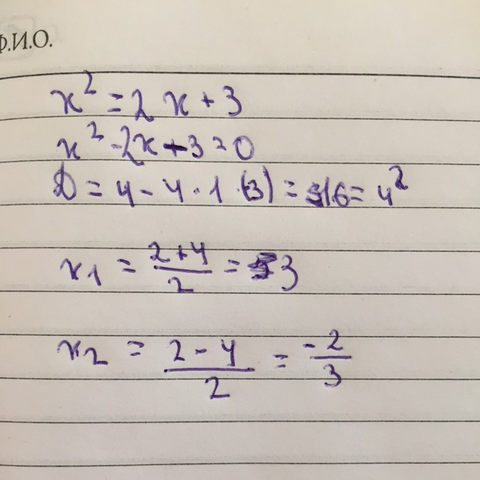 Ф.И.О.
x² = 2x + 3
x² - 2x - 3 = 0
D = 4 - 4 · 1 · (3) = 16 = 4²
x1 = (2+4)/2 = 3
x2 = (2-4)/2 = -2/3